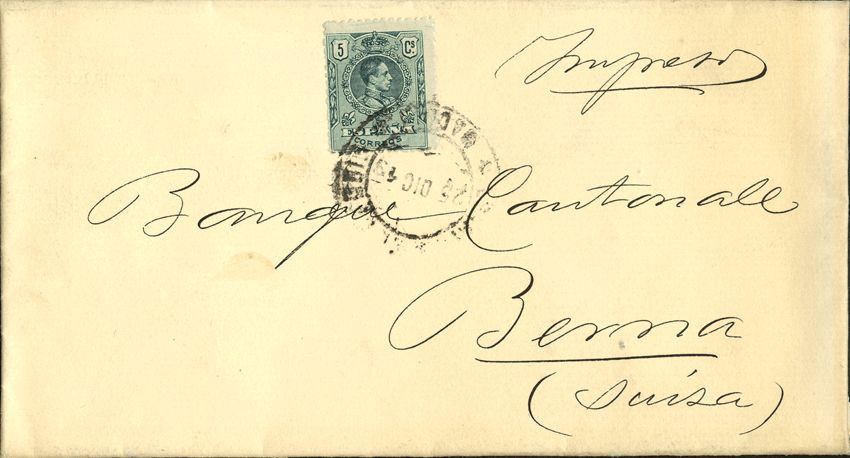 5 Cs.
CORREOS
Impreso
25 DIC 13
Banque Cantonale
Berna
(Suiza)